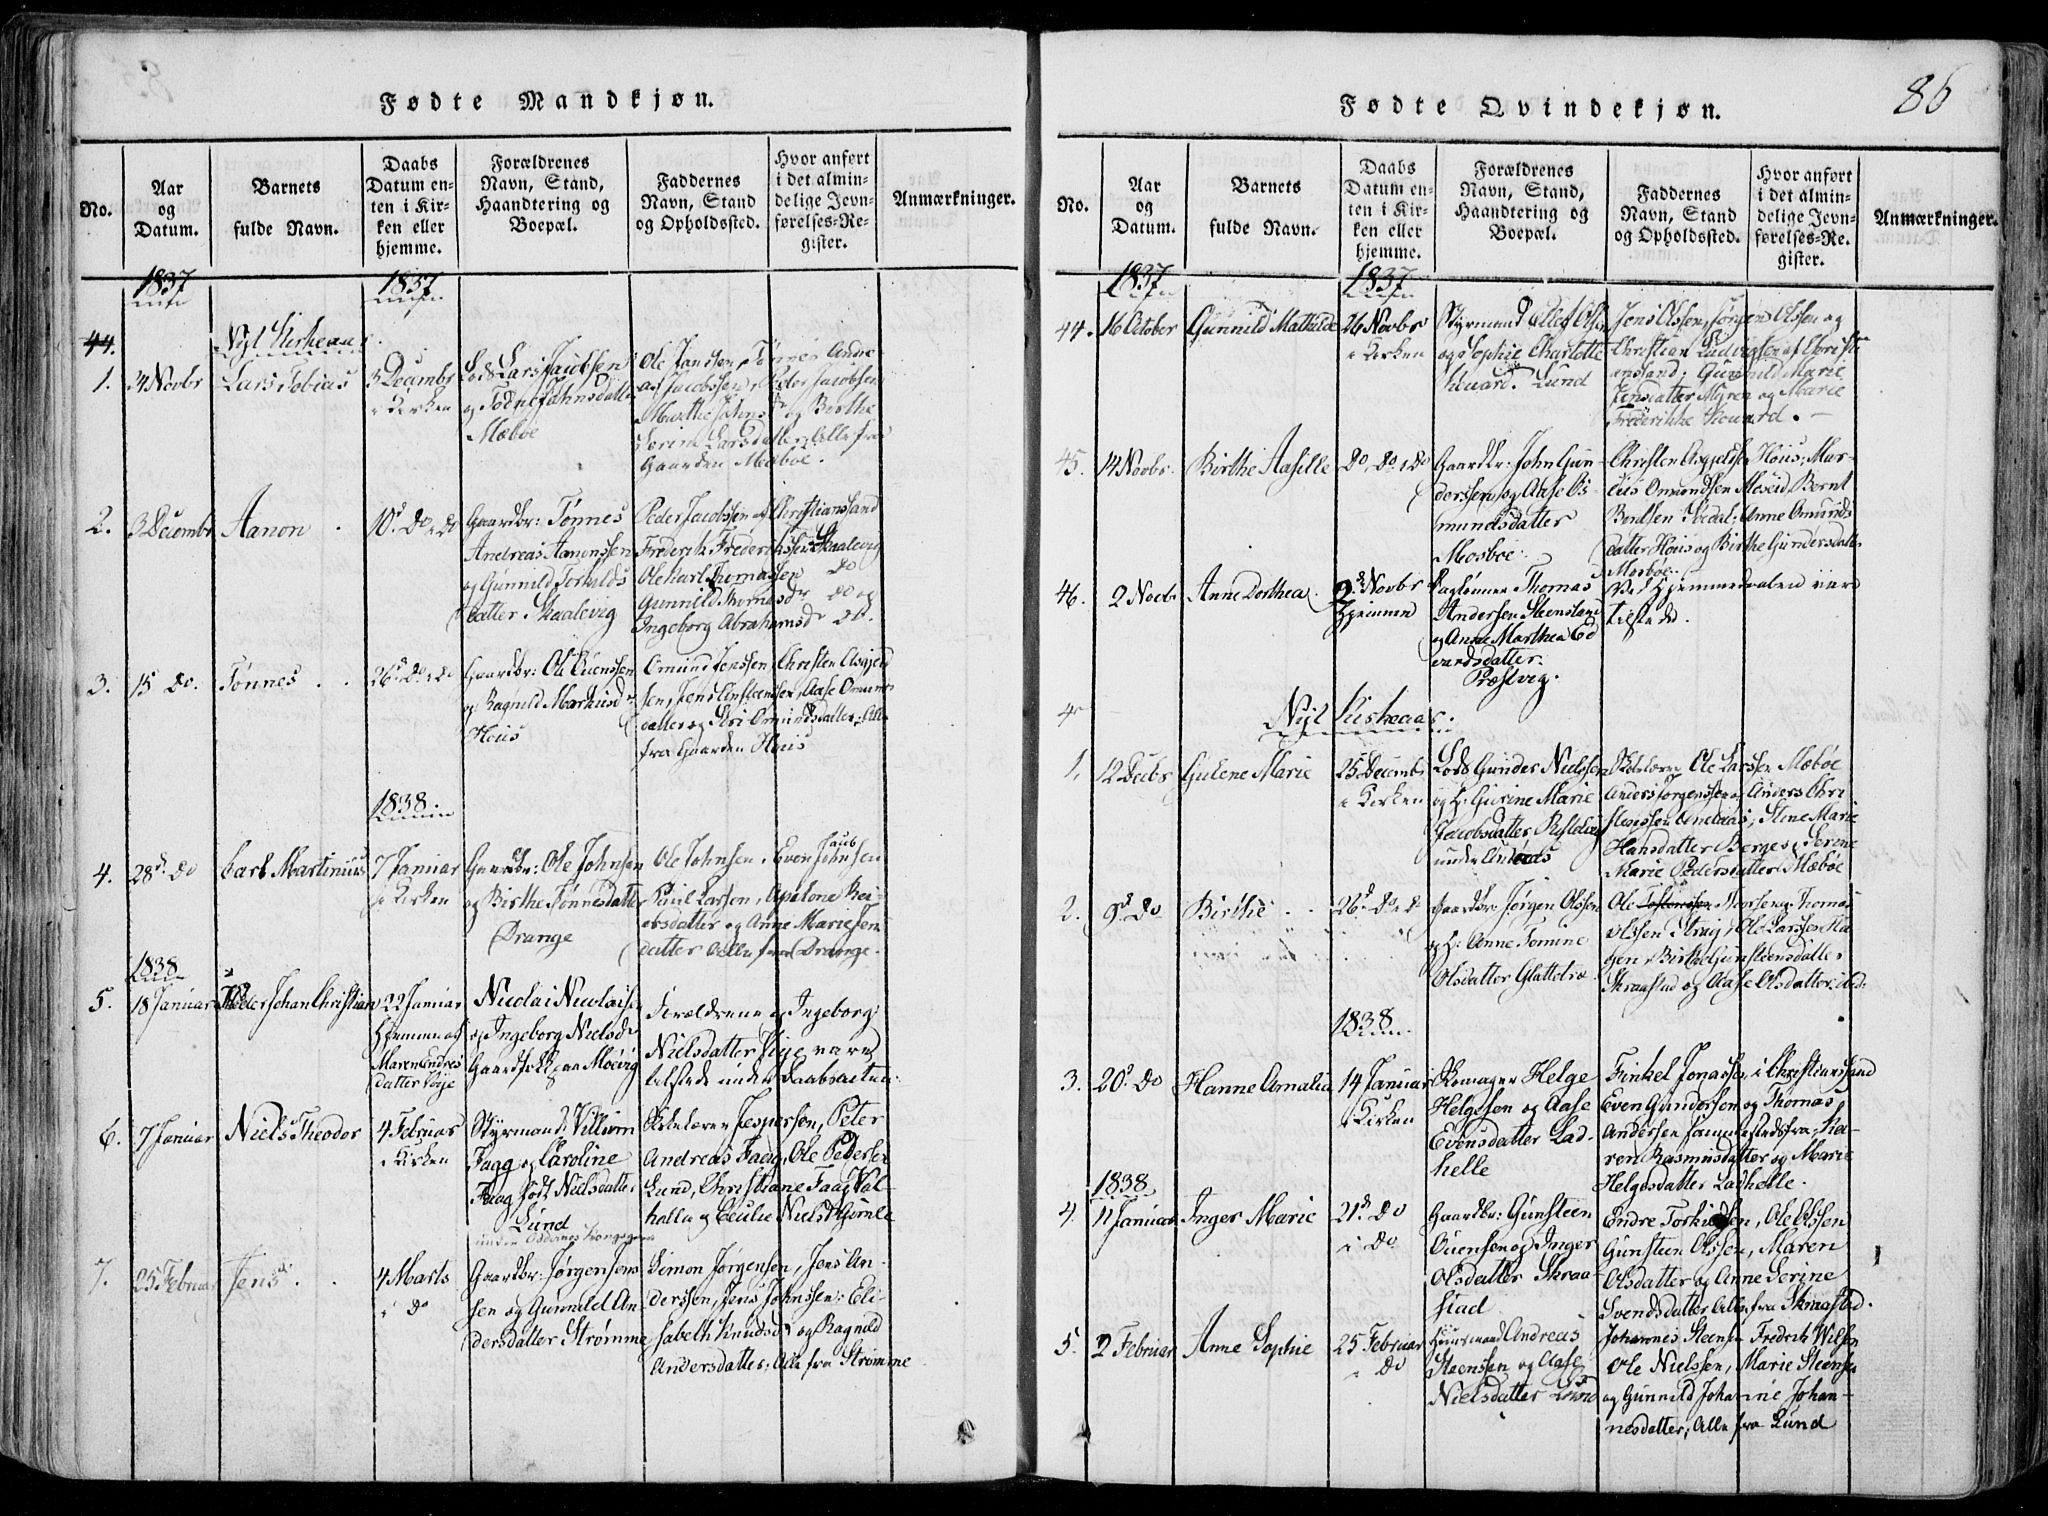 Fødte Mandkjøn.
No.
Aar
og
Datum.
Barnets
fulde Navn.
Daabs
Datum en-
ten i Kir-
ken eller
hjemme.
Forældrenes
Navn, Stand,
Haandtering og
Boepæl.
Faddernes
Navn, Stand
og Opholdssted.
Hvor anført
i det almin-
delige Jevn-
førelses-Re-
gister.
Anmærkninger.
1837
1837
44.
Nyt Kirkeaar.
1.
3 Novbr
Lars Tobias
3 Decembr
i Kirken
Lods Lars Jacobsen
og Tone Johnsdatter
Mæbøe
Ole Jansen, Tønnes Andre-
as Jacobssen, Peder Jacobsen
Marthe Johnsdr og Birthe
Serine Larsdatter, Alle fra
Gaarden Mæbøe.
2.
3 Decembr
Aanon
10d Do i Do
Gaardbr: Tønnes
Andreas Aanonssen
og Gunnild Torkilds
datter Skaalevig
Peder Jacobssen af Christianssand
Frederik Frederikssen Skaalevig
Ole Karl Thomassen Do
Gunnild Thomasdr Do og
Ingeborg Abrahamsdr Do.
3.
15 Do.
Tønnes
26d Do i Do
Gaardbr: Ole Ouenssen
og Ragnild Markusdr
Høiis
Omund Jenssen, Christen Asgjeld
sen, Jens Gunsteensen, Aase Omunds
datter og Siri Omundsdatter, Alle
fra Gaarden Høiis
1838.
4.
28d Do
Carl Martinius
7 Januar
i Kirken
Gaardbr: Ole Johnsen
og Birthe Tønnesdatter
Drange
Ole Johnsen, Even Jacobsen
Paul Larsen, Apelone Rei-
ersdatter og Anne Marie Jens
datter Alle fra Drange.
1838
5.
18 Januar
Peder Johan Christian
22 Januar
Hjemme af
Maren Endres
datter Voie
Nicolai Nicolaisen
og Ingeborg Nielsdr
Gaardfolk paa Møevig
Forældrene og Ingeborg
Nielsdatter Voie vare
tilstede under Daabsacten.
6.
7 Januar
Niels Theodor
4 Februar
i Kirken
Styrmand Villum
Faag og Caroline
Faag født Nielsdatter
Lund
under Oddernes Kongsgaard
Skolelærer Jespersen, Peter
Andreas Faag, Ole Pedersen
Lund, Christiane Faag Val-
halla og Cecilie Nielsdr Gimle
7.
25 Februar
Jens
4 Marts
i Do
Gaardbr: Jørgen Jens
sen og Gunnild An
dersdatter Strømme
Simon Jørgensen, Jens An-
derssen, Jens Johnssen: Eli-
sabeth Knudsdr og Ragnild
Andersdatter, Alle fra Strømme
86
Fødte Qvindekjøn.
No.
Aar
og
Datum.
Barnets
fulde Navn.
Daabs
Datum en-
ten i Kir-
ken eller
hjemme.
Forældrenes
Navn, Stand,
Haandtering og
Boepæl.
Faddernes
Navn, Stand
og Opholdssted.
Hvor anført
i det almin-
delige Jevn-
førelses-Re.
gister.
Anmærkninger.
1837
1837
44.
16 October
Gunnild Mathilde
26 Novbr
i Kirken
Styrmand Ellef Olsen
og Sophie Charlotte
Lund
Jens Olssen, Jørgen Olssen og
Christian Ludvigsen af Christi
anssand; Gunnild Marie
Jensdatter Myren og Marie
Frederikke
45.
14 Novbr
Birthe Aasille
Do, Do i Do
Gaardbr: John Gun-
derssen og Aase Os
mundsdatter
Mosbøe.
Christen Asgjeldsen Høiis, Mar-
cus Omundsen Moseid, Bernt
Berntsen Vedal; Anne Omunds
datter Høiis og Birthe Gundersdatter
Mosbøe.
46.
2 Novb
Anne Dorthea
2 Novbr
Hjemme
Daglønner Thomas
Andersen Steensland
og Anne Marthea Ed
vardsdatter
Præstvig.
Ved Hjemmedaaben vare
tilstede.
Nyt Kirkeaar.
1.
12 Decbr
Gulene Marie
25 Decembr
i Kirken
Lods Gunder Nielssen
og H: Gurine Marie
Jacobsdatter
under Andaas
Skolelærer Ole Larssen Mæbøe
Anders Jørgenssen, Anders Chri
stenssen Andaas, Stine Marie
Hansdatter Berge, Serine
Marie Pedersdatter Mæbøe
2.
9d Do
Birthe
26d Do i Do
Gaardbr Jørgen Olssen
og H: Anne Tomine
Olsdatter Glattetræ
Ole Torstenssen Mosseng, Thomas
Olssen Straig, Ole Larssen Ha
gen, Birthe Gunsteensdatter
Skraastad og Aase Olsdatter ibid:
1838.
3.
20d Do
Hanne Amalia
14 Januar
i Kirken
Skomager Helge
Helgesen og Aase
Evensdatter Lad-
helle
Tinkel Jonassen i Christianssand
Even Gundersen og Thomas
Andersen sammestedsfra, Ka-
ren Rasmusdatter og Marie
Helgesdatter Ladhelle.
1838
4.
11 Januar
Inger Marie
21d Do
i Do
Gaardbr: Gunsteen
Ouensen og Inger
Olsdatter Skraa-
stad
Endre Torkildsen, Ole Olssen
Gunsteen Olssen, Maren
Olsdatter og Anne Serine
Svendsdatter Alle fra Skraastad.
5.
2 Februar
Anne Sophie
25 Februar
i Do
Huusmand Andreas
Steenssen og Aase
Nielsdatter Lund
Johannes Steensen Fredrik Wilsen
Ole Nielssen, Marie Steensen
og Gunnild Joharine Johan-
nesdatter, Alle fra Lund